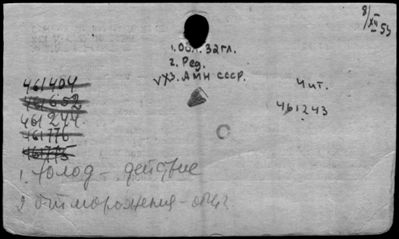 8/XII 53
1. Обл. 32гл.
2. Ред.
УХЗ. АМН СССР.
Чит.
461404
461652
461244.
461776
461775
461243
1. Холод - действие
2. Отморожения - общ.